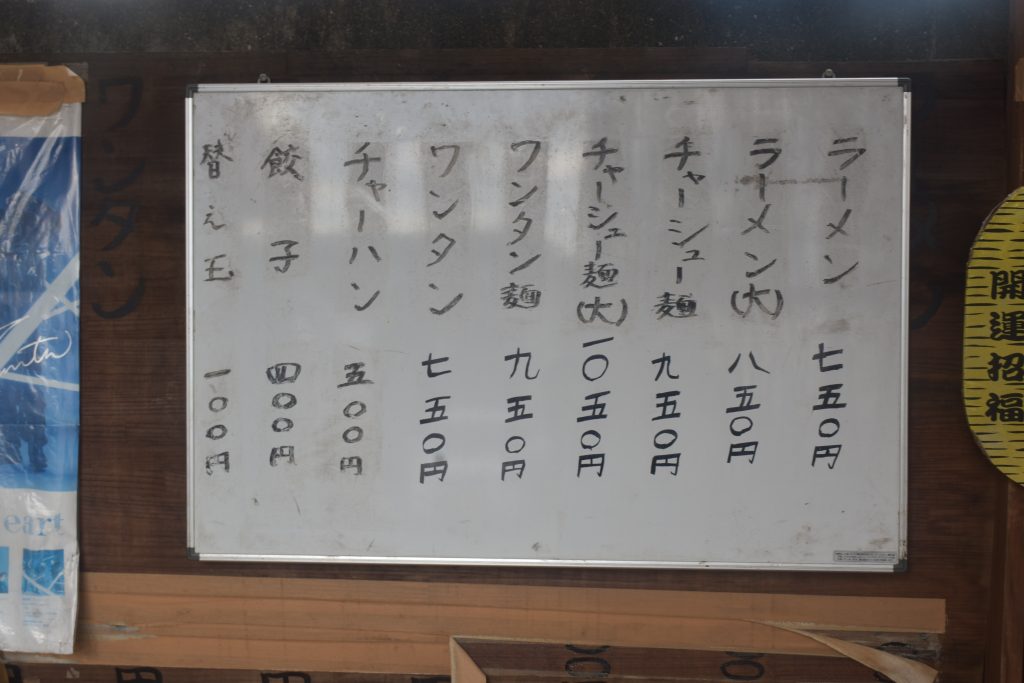 ラーメン 七五〇円
ラーメン(大) 八五〇円
チャーシュー麺 九五〇円
チャーシュー麺(大) 一〇五〇円
ワンタン麺 九五〇円
ワンタン 七五〇円
チャーハン 五〇〇円
餃子 四〇〇円
替え玉 一〇〇円
開運招福
ワンタン
eart
円
円